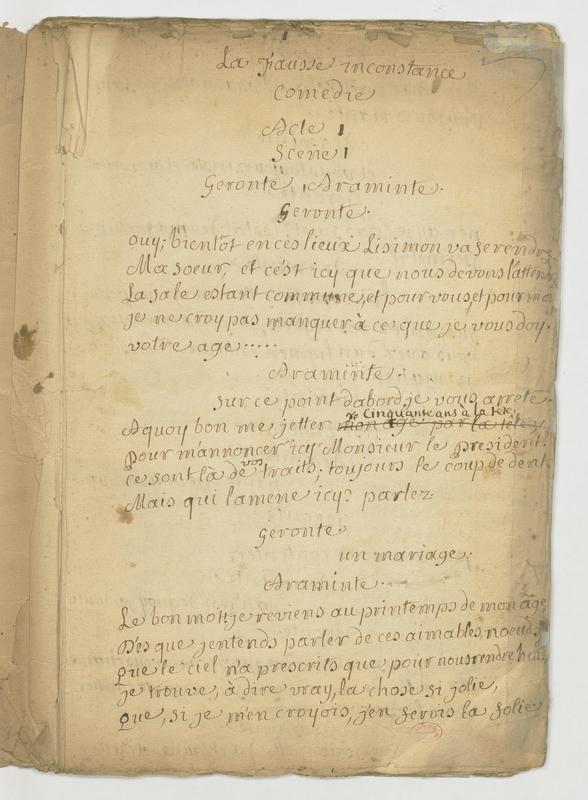 La Fausse inconstance
Comedie
Acte 1
Scene 1
Geronte, Araminte.
Geronte.
ouy; bientot en ces lieux Lisimon va se rendre
Ma soeur, et c'est icy que nous devons l'attendre
La sale estant commune, et pour vous et pour moi
je ne croy pas manquer à ce que je vous doy.
votre age.....
Araminte.
sur ce point d'abord je vous arrete.
Cinquante ans à la tete,
A quoy bon me jetter mon age par la tete
pour m'annoncer icy Monsieur le president.
vos
ce sont là de traits; toujours le coup de dent.
Mais qui l'amene icy? parlez.
Geronte.
un mariage.
Araminte.
Le bon mot! je reviens au printemps de mon âge,
Dés que j'entends parler de ces aimables noeuds,
Que le ciel n'a prescrits que pour nous rendre
je trouve, à dire vray, la chose si jolie,
Que, si je m'en croyois, j'en ferois la folie